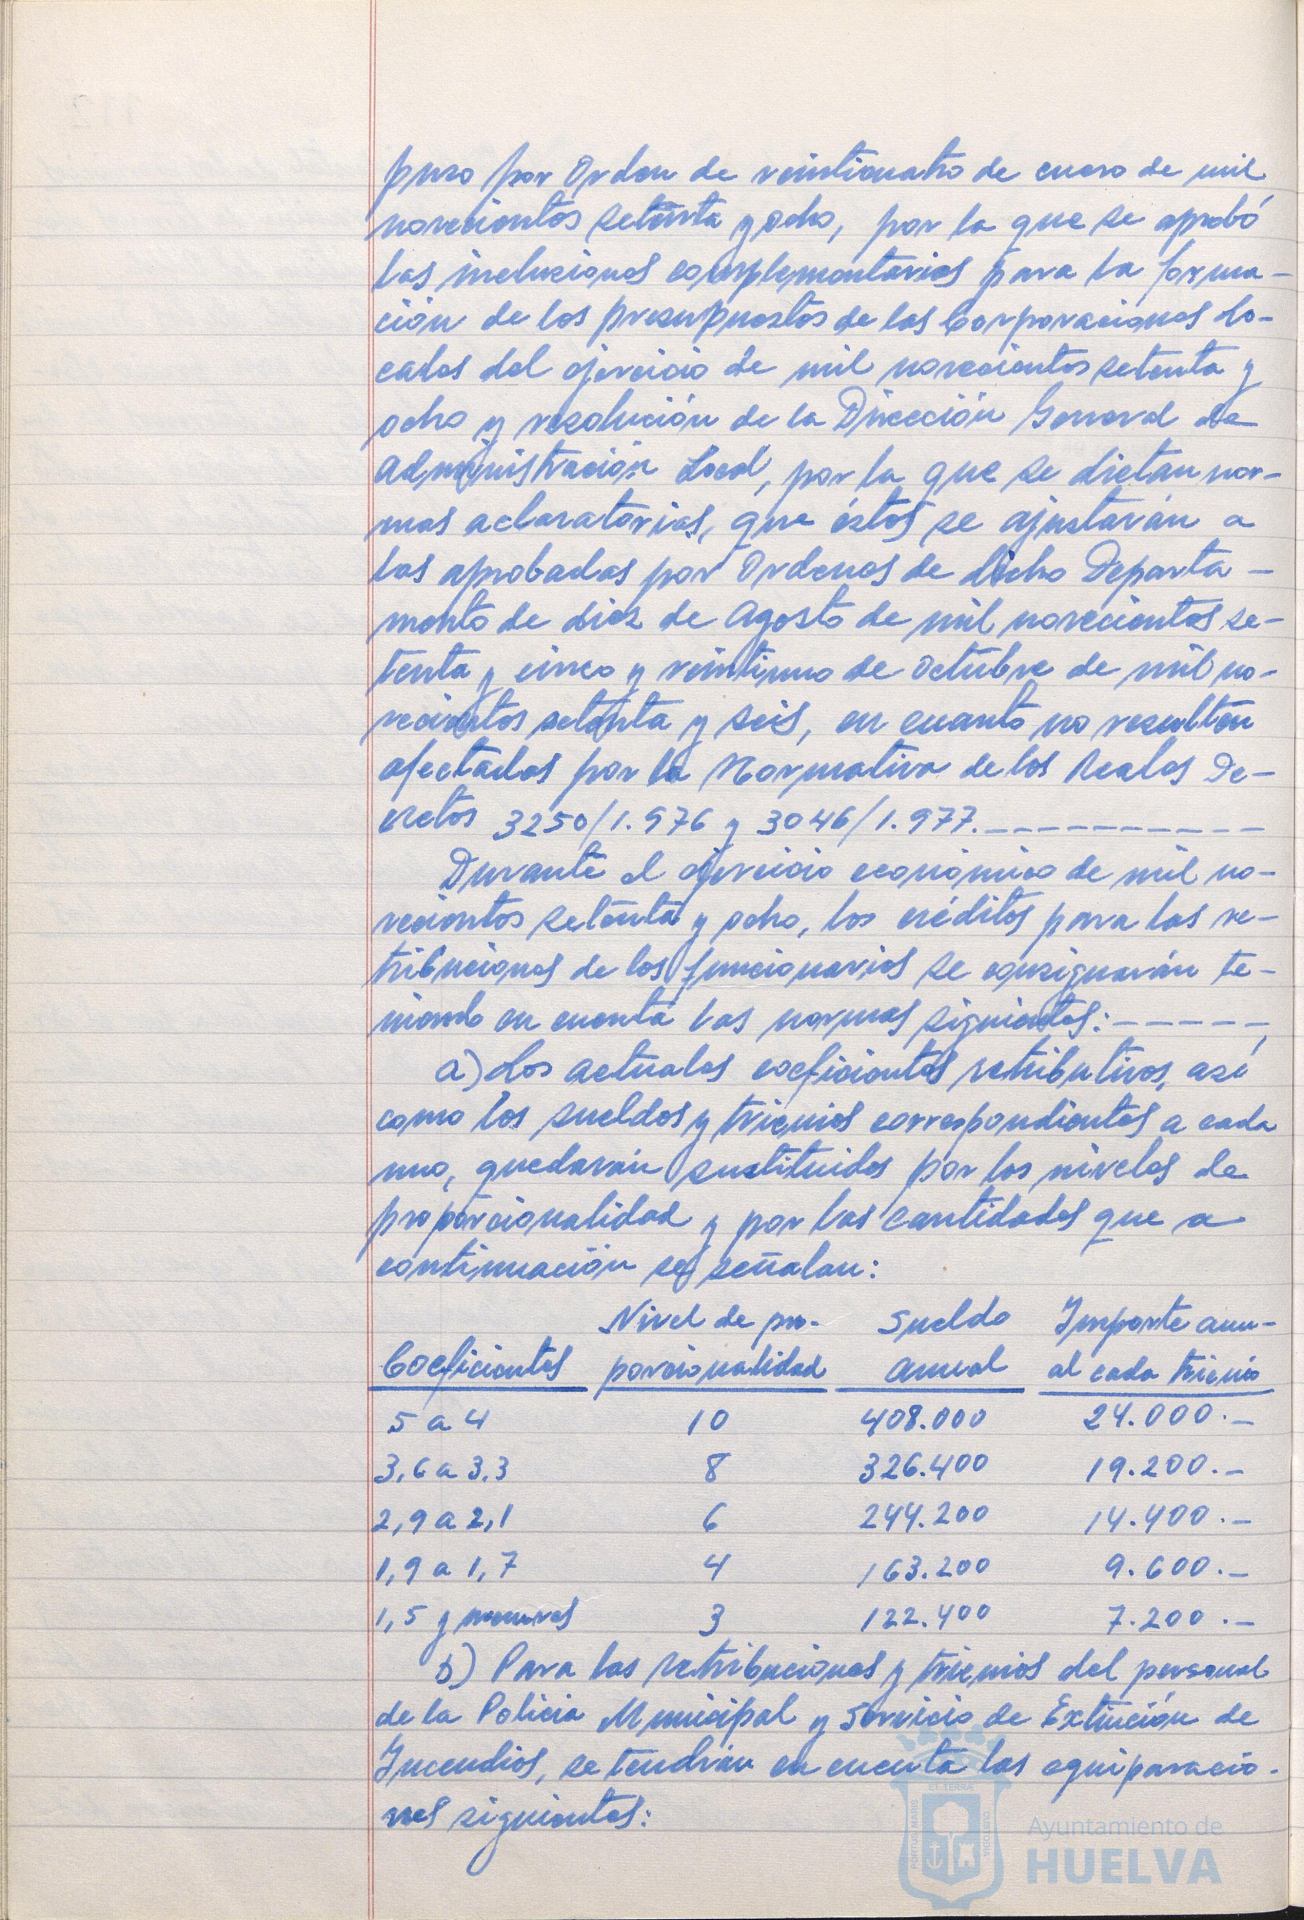 puso por Orden de veinticuatro de enero de mil
novecientos setenta y ocho, por la que se aprobó
las inclusiones complementarias para la forma-
ción de los presupuestos de las Corporaciones Lo-
cales del ejercicio de mil novecientos setenta y
ocho y resolución de la Dirección General de
Administración Local, por la que se dictan nor-
mas aclaratorias, que éstos se ajustarán a
las aprobadas por Ordenes de dicho Departa-
mento de diez de Agosto de mil novecientos se-
tenta y cinco y veintiuno de octubre de mil no-
vecientos setenta y seis, en cuanto no resulten
afectadas por la Normativa de los Reales De-
cretos 3250/1.976 y 3046/1.977.----------
Durante el ejercicio económico de mil no-
vecientos setenta y ocho, los créditos para las re-
tribuciones de los funcionarios se consignarán te-
niendo en cuenta las normas siguientes:-----
a) Los actuales coeficientes retributivos, así
como los sueldos y trienios correspondientes a cada
uno, quedarán sustituidos por los niveles de
proporcionalidad y por las cantidades que a
continuación se señalan:
Nivel de pro- Sueldo Importe anu-
Coeficientes porcionalidad anual al cada trienio
5 a 4 10 408.000 24.000.-
3,6 a 3,3 8 326.400 19.200.-
2,9 a 2,1 6 244.200 14.400.-
1,9 a 1,7 4 163.200 9.600.-
1,5 y menores 3 122.400 7.200.-
b) Para las retribuciones y trienios del personal
de la Policia Municipal y Servicio de Extinción de
Incendios, se tendrán en cuenta las equiparacio-
nes siguientes:
ET TERRAE
PORTUS MARIS
CUSTODIA
Ayuntamiento de
HUELVA